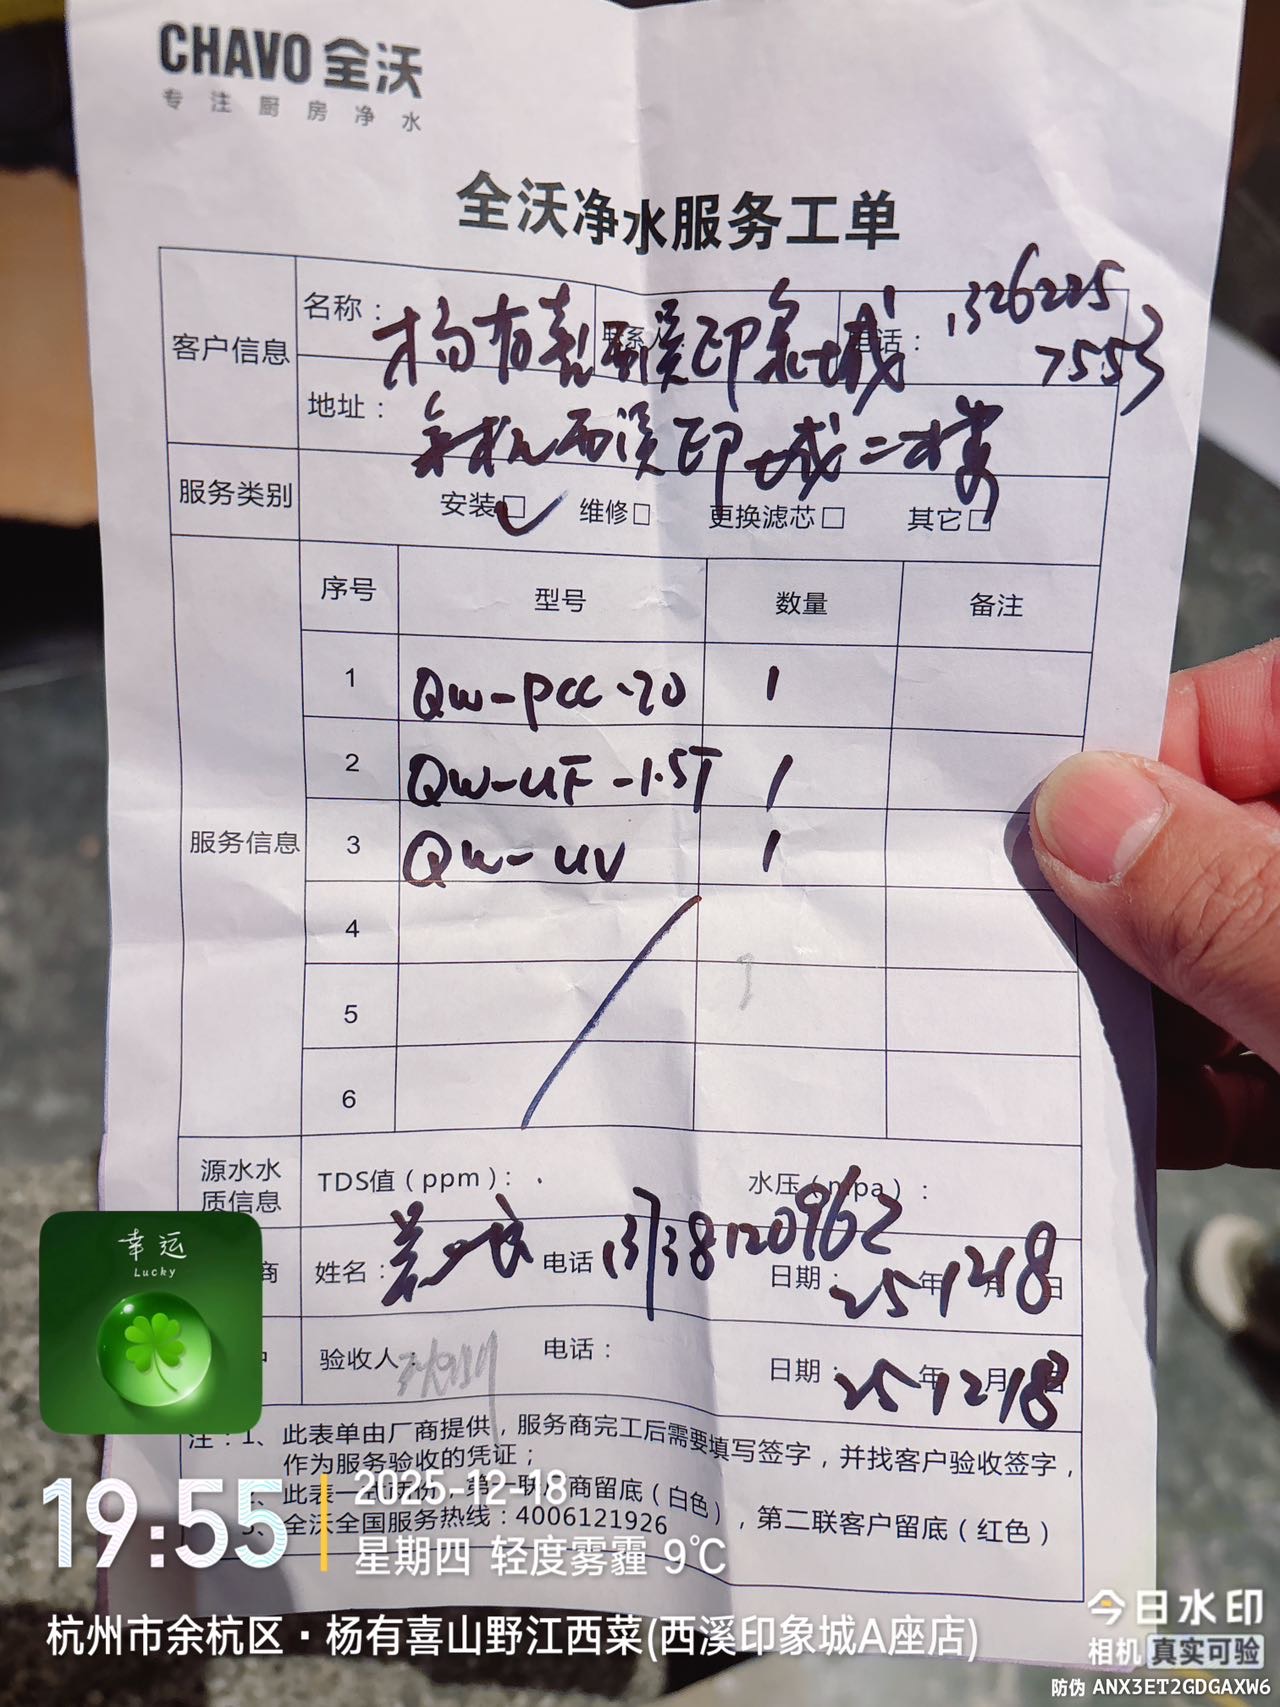 CHAVO 全沃
专注厨房净水
全沃净水服务工单
客户信息
名称： 杨有喜西溪印象城
联系人
电话： 13262257553
地址： 余杭西溪印城二楼
服务类别
安装□ 维修□ 更换滤芯□ 其它□
服务信息
序号 型号 数量 备注
1 QW-PCC-20 1
2 QW-UF-1.5T 1
3 QW-UV 1
4
5
6
源水水质信息
TDS值（ppm）： 水压（mpa）：
商 姓名： 电话 13738120962 日期： 25年12月18日
验收人： 电话： 日期： 25年12月18日
注：1、此表单由厂商提供，服务商完工后需要填写签字，并找客户验收签字，
作为服务验收的凭证；
2、此表一式两份，第一联厂商留底（白色），第二联客户留底（红色）
3、全沃全国服务热线：4006121926
幸运
Lucky
19:55
2025-12-18
星期四 轻度雾霾 9℃
杭州市余杭区·杨有喜山野江西菜(西溪印象城A座店)
今日水印
相机 真实可验
防伪 ANX3ET2GDGAXW6